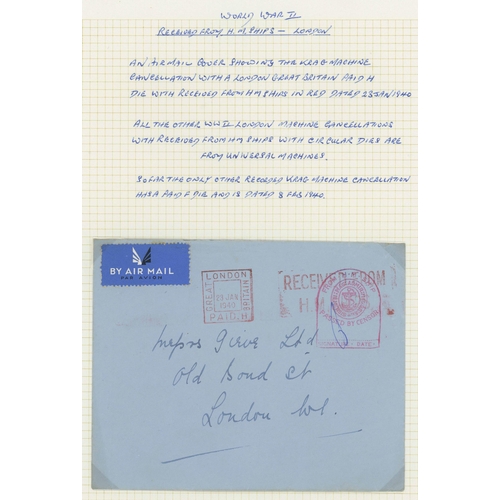 WORLD WAR II
RECEIVED FROM H.M. SHIPS - LONDON
AN AIRMAIL COVER SHOWING THE KRAG MACHINE
CANCELLATION WITH A LONDON GREAT BRITAIN PAID H
DIE WITH RECEIVED FROM HM SHIPS IN RED DATED 23 JAN 1940
ALL THE OTHER WWII LONDON MACHINE CANCELLATIONS
WITH RECEIVED FROM HM SHIPS WITH CIRCULAR DIES ARE
FROM UNIVERSAL MACHINES.
SO FAR THE ONLY OTHER RECORDED KRAG MACHINE CANCELLATION
HAS A PAID F DIE AND IS DATED 8 FEB 1940.
BY AIR MAIL
PAR AVION
LONDON
GREAT BRITAIN
23 JAN
1940
PAID. H
RECEIVED FROM
H.
PASSED BY CENSOR
Messrs Gieve Ltd
Old Bond St
London W1.